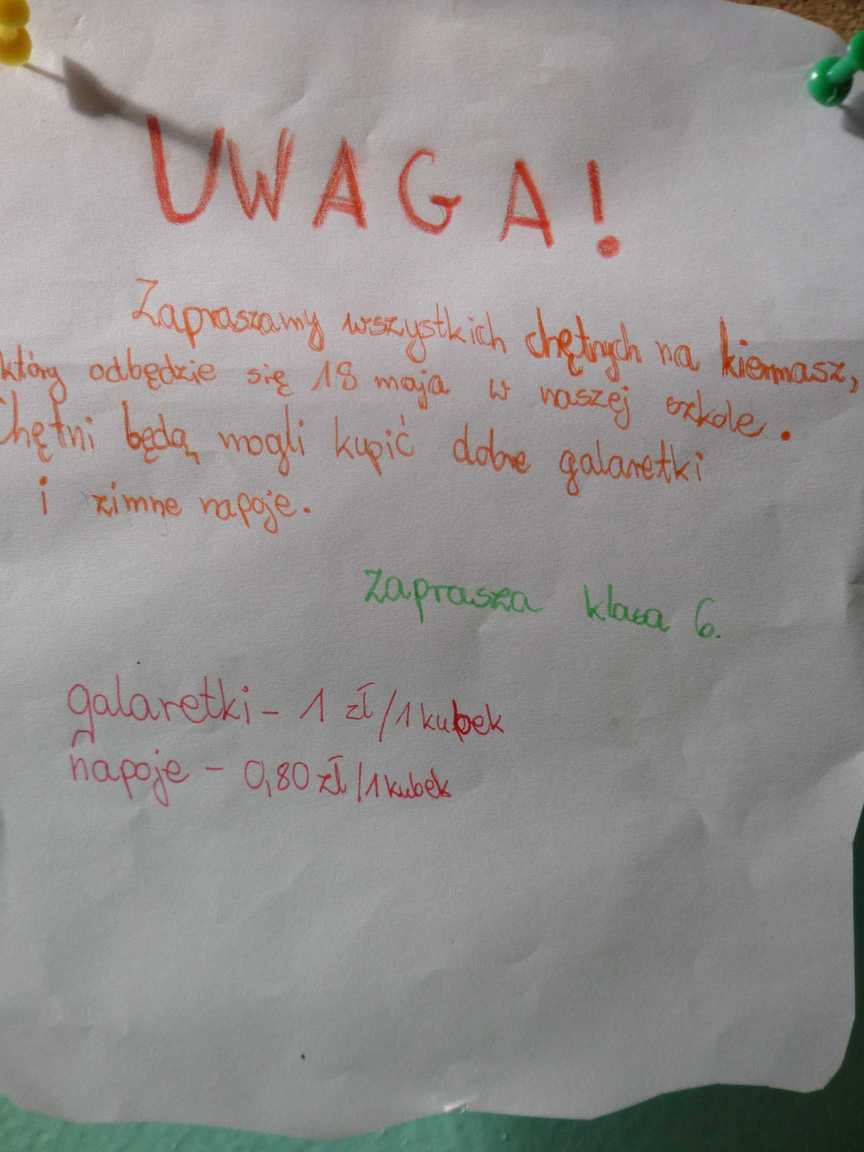 UWAGA!
Zapraszamy wszystkich chętnych na kiermasz,
który odbędzie się 18 maja w naszej szkole.
Chętni będą mogli kupić dobre galaretki
i zimne napoje.
Zaprasza klasa 6.
galaretki - 1 zł/1 kubek
napoje - 0,80 zł/1 kubek